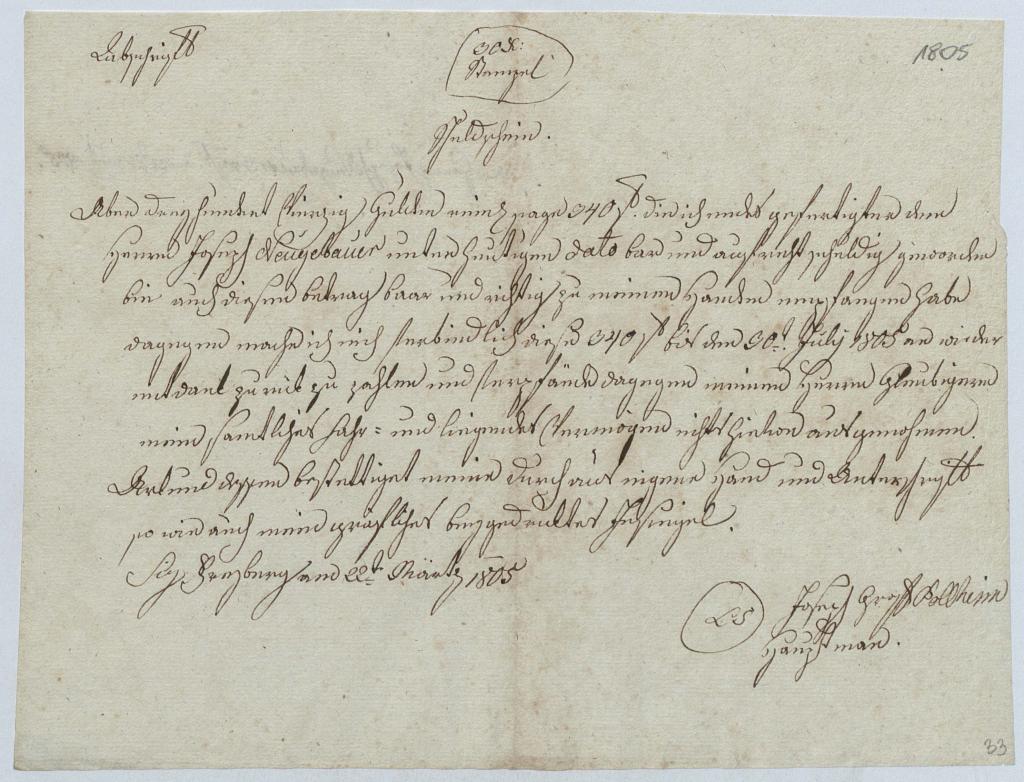 Abschrift
30 x:
Stempel
1805
Schuldschein.
Über dreyhundert Vierzig Gulden reine sage 340 f. die ich endes gefertigter dem
Herrn Joseph Neugebauer unter heutigen dato bar und aufrecht schuldig geworden
bin auch diesen betrag baar und richtig zu meinen Handen empfangen habe
dagegen mache ich mich verbindlich diese 340 f bis den 30t. July 1805 an wieder
mit dank zurük zu zahlen und verpfände dagegen meinen Herrn Glaubigern
mein samtliches fahr= und liegendes Vermögen nichts hievon ausgenohmen.
Urkund dessen bestettiget meine durchaus eigene Hand und Unterschrift
so wie auch mein gräfliches beygedruktes Insiegel.
Sig Presburg am 22t. Märtz 1805
LS
Joseph Graf
Hauptman.
33